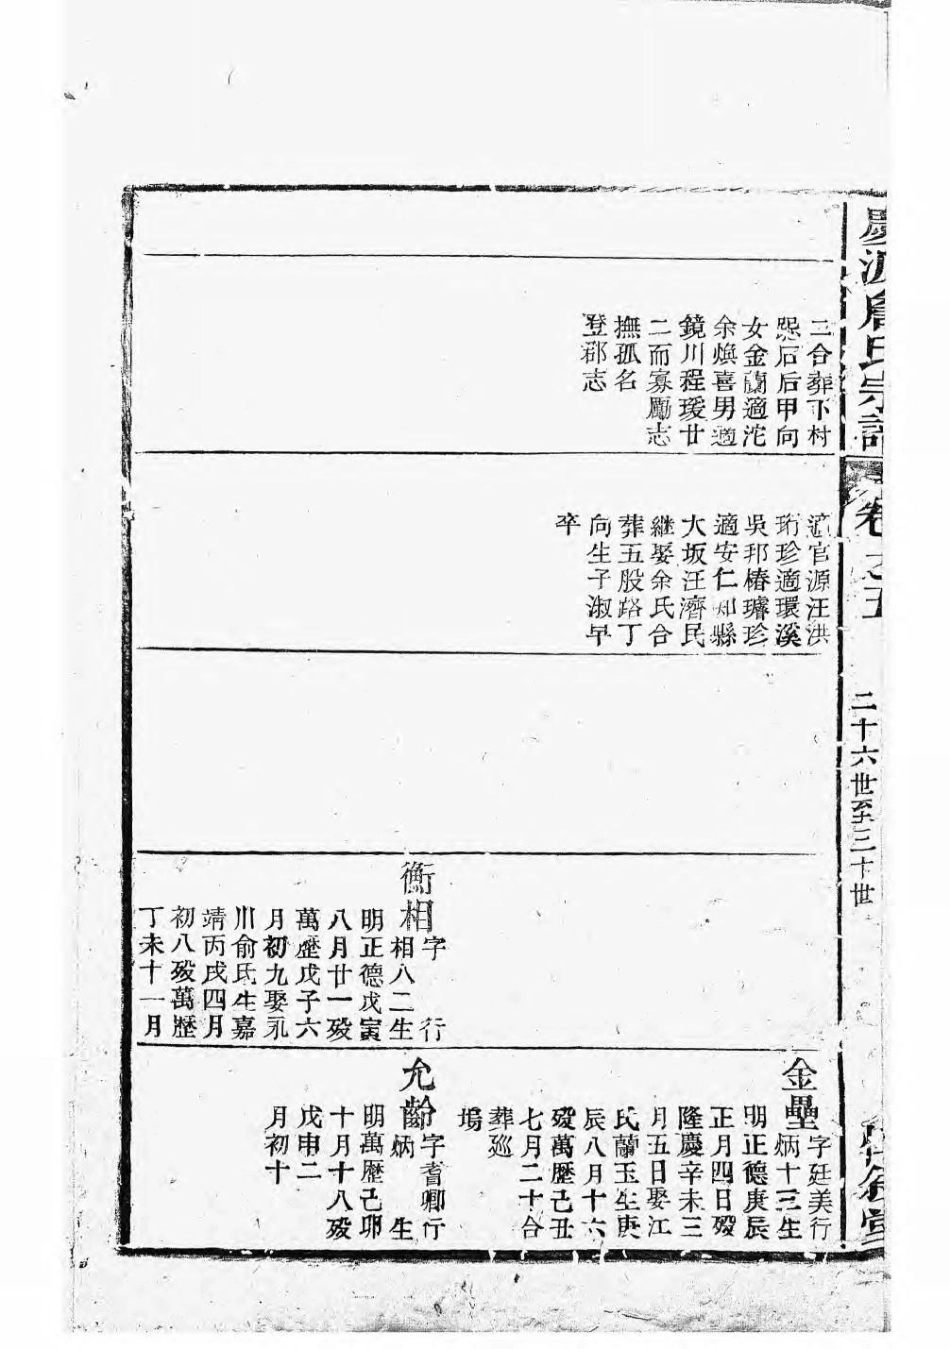 慶源詹氏宗譜
卷之五
二十六世至三十世
二合葬下村
熈后后甲向
女金蘭適沱
余煥喜男適
鏡川程瑗廿
二而寡勵志
撫孤名
登郡志
適官源汪洪
珩珍適環溪
吳邦椿璿珍
適安仁知縣
大坂汪濟民
継娶余氏合
葬五股路丁
向生子淑早
卒
衡相
字 行
相八二生
明正德戊寅
八月廿一殁
萬歷戊子六
月初九娶汛
川俞氏生嘉
靖丙戌四月
初八殁萬歷
丁未十一月
金壘
字廷美行
炳十三生
明正德庚辰
正月四日殁
隆慶辛未三
月五日娶江
氏蘭玉生庚
辰八月十六
殁萬歷己丑
七月二十合
葬巡
塢
允齡
字耆卿行
炳 生
明萬歷己卯
十月十八殁
戊申二
月初十